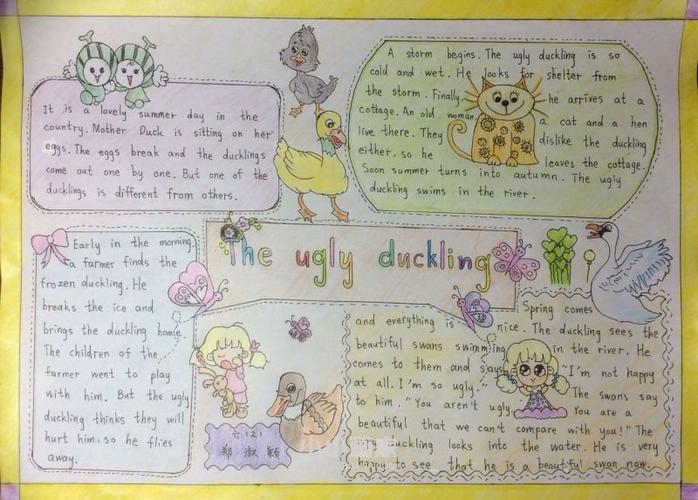 The ugly duckling
It is a lovely summer day in the
country. Mother Duck is sitting on her
eggs. The eggs break and the ducklings
come out one by one. But one of the
ducklings is different from others.
A storm begins. The ugly duckling is so
cold and wet. He looks for shelter from
the storm. Finally he arrives at a
cottage. An old woman, a cat and a hen
live there. They dislike the duckling
either. so he leaves the cottage.
Soon summer turns into autumn. The ugly
duckling swims in the river.
Early in the morning,
a farmer finds the
frozen duckling. He
breaks the ice and
brings the duckling home.
The children of the
farmer went to play
with him. But the ugly
duckling thinks they will
hurt him. so he flies
away.
Spring comes
and everything is nice. The duckling sees the
beautiful swans swimming in the river. He
comes to them and says "I'm not happy
at all. I'm so ugly." The swans say
to him. "You aren't ugly. You are a
beautiful that we can't compare with you!" The
ugly duckling looks into the water. He is very
happy to see that he is a beautiful swan now.
六(2)
郑淑颖